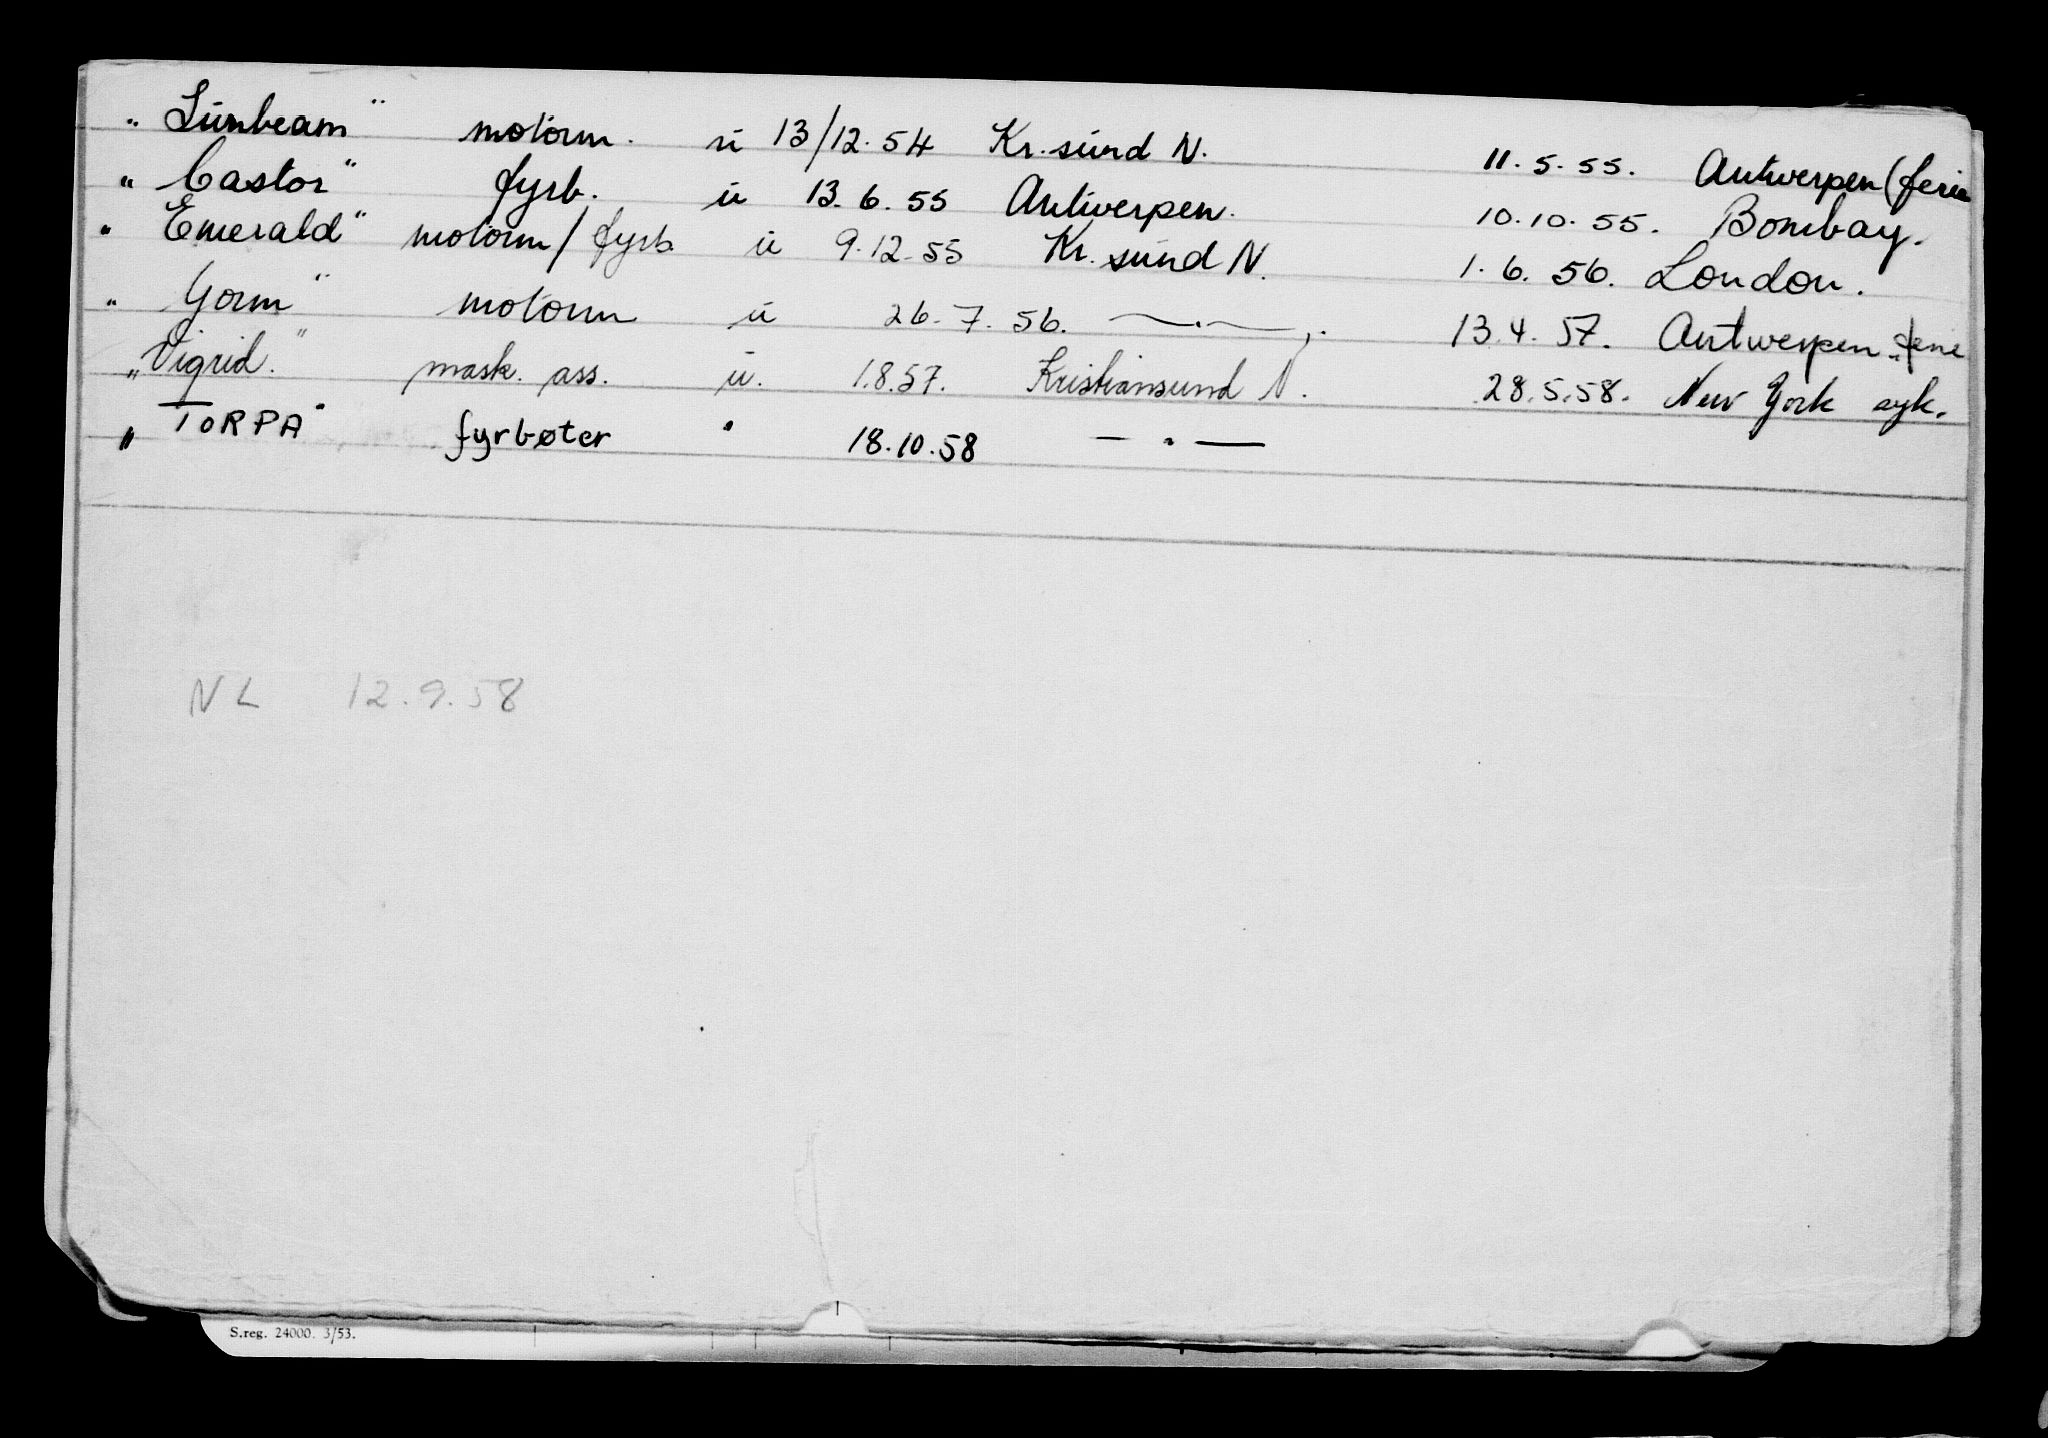 " Sunbeam " motorm. u 13/12.54 Kr.sund N. 11.5.55. Antwerpen (ferie
" Castor " fyrb. u 13.6.55 Antwerpen. 10.10.55. Bombay.
" Emerald " motorm/fyrb u 9.12.55 Kr.sund N. 1.6.56. London.
" Gorm " motorm u 26.7.56. —.—,. 13.4.57. Antwerpen. ferie
" Vigrid. " mask. ass. u. 1.8.57. Kristiansund N. 28.5.58. New York syk.
" TORPA " fyrbøter " 18.10.58 — " —
NL 12.9.58
S.reg. 24000. 3/53.